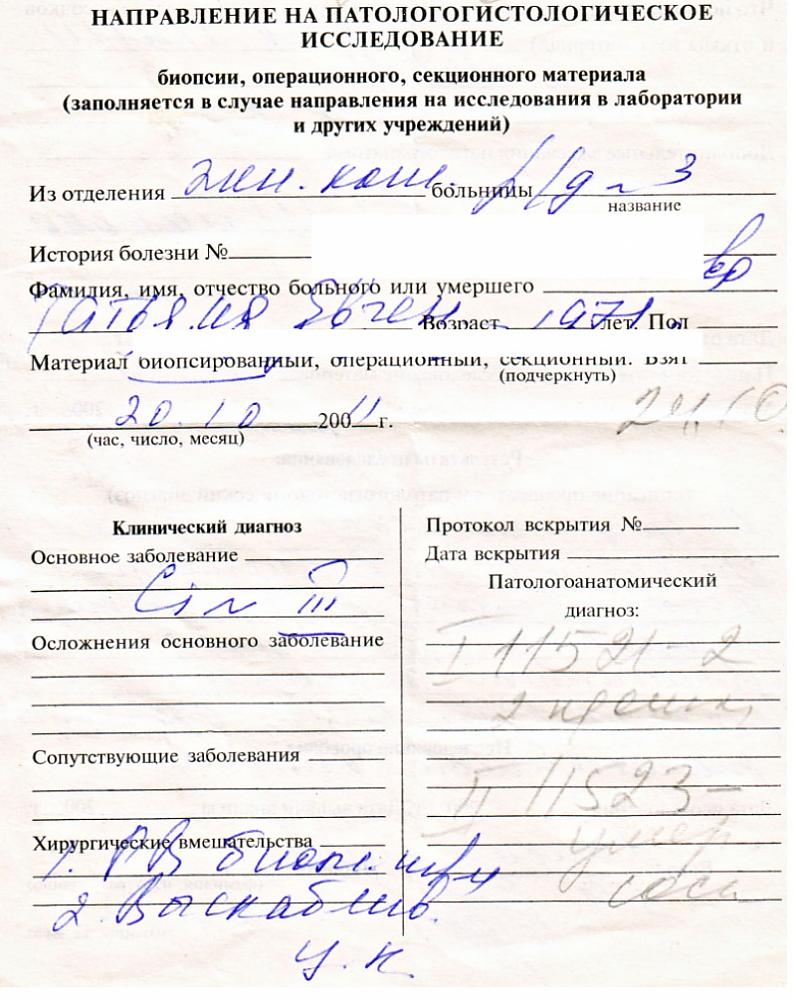 НАПРАВЛЕНИЕ НА ПАТОЛОГОГИСТОЛОГИЧЕСКОЕ
ИССЛЕДОВАНИЕ
биопсии, операционного, секционного материала
(заполняется в случае направления на исследования в лаборатории
и других учреждений)
Из отделения жен. конс. больницы №3
название
История болезни №
Фамилия, имя, отчество больного или умершего
Татьяна Евген. Возраст 1971 лет. Пол
Материал биопсированный, операционный, секционный. Взят
(подчеркнуть)
20.10 2001г. 24.10
(час, число, месяц)
Клинический диагноз
Основное заболевание
Cin III
Осложнения основного заболевание
Сопутствующие заболевания
Хирургические вмешательства
1. РВ биопс.
2. Выскаблив.
ц.к.
Протокол вскрытия №
Дата вскрытия
Патологоанатомический
диагноз:
I 11521-2
II 11523-